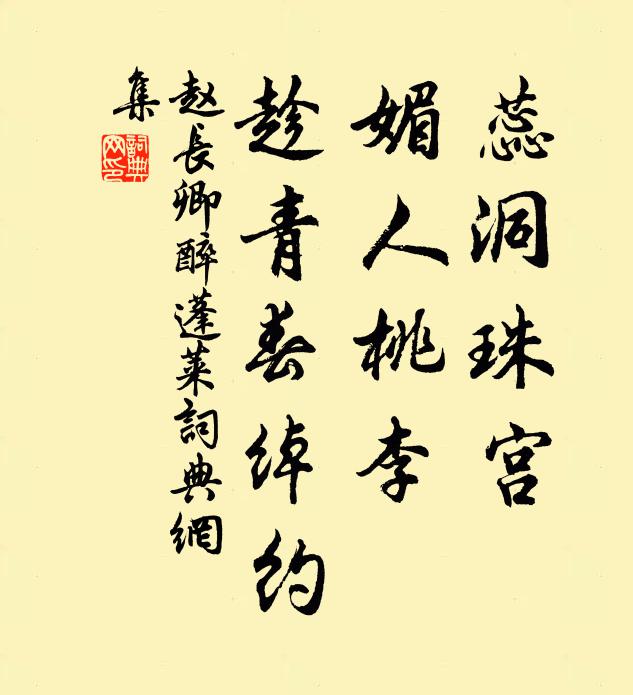 蕊洞珠宫
媚人桃李
趁青春绰约
赵長卿醉蓬莱詞典網
集
詞典
网印